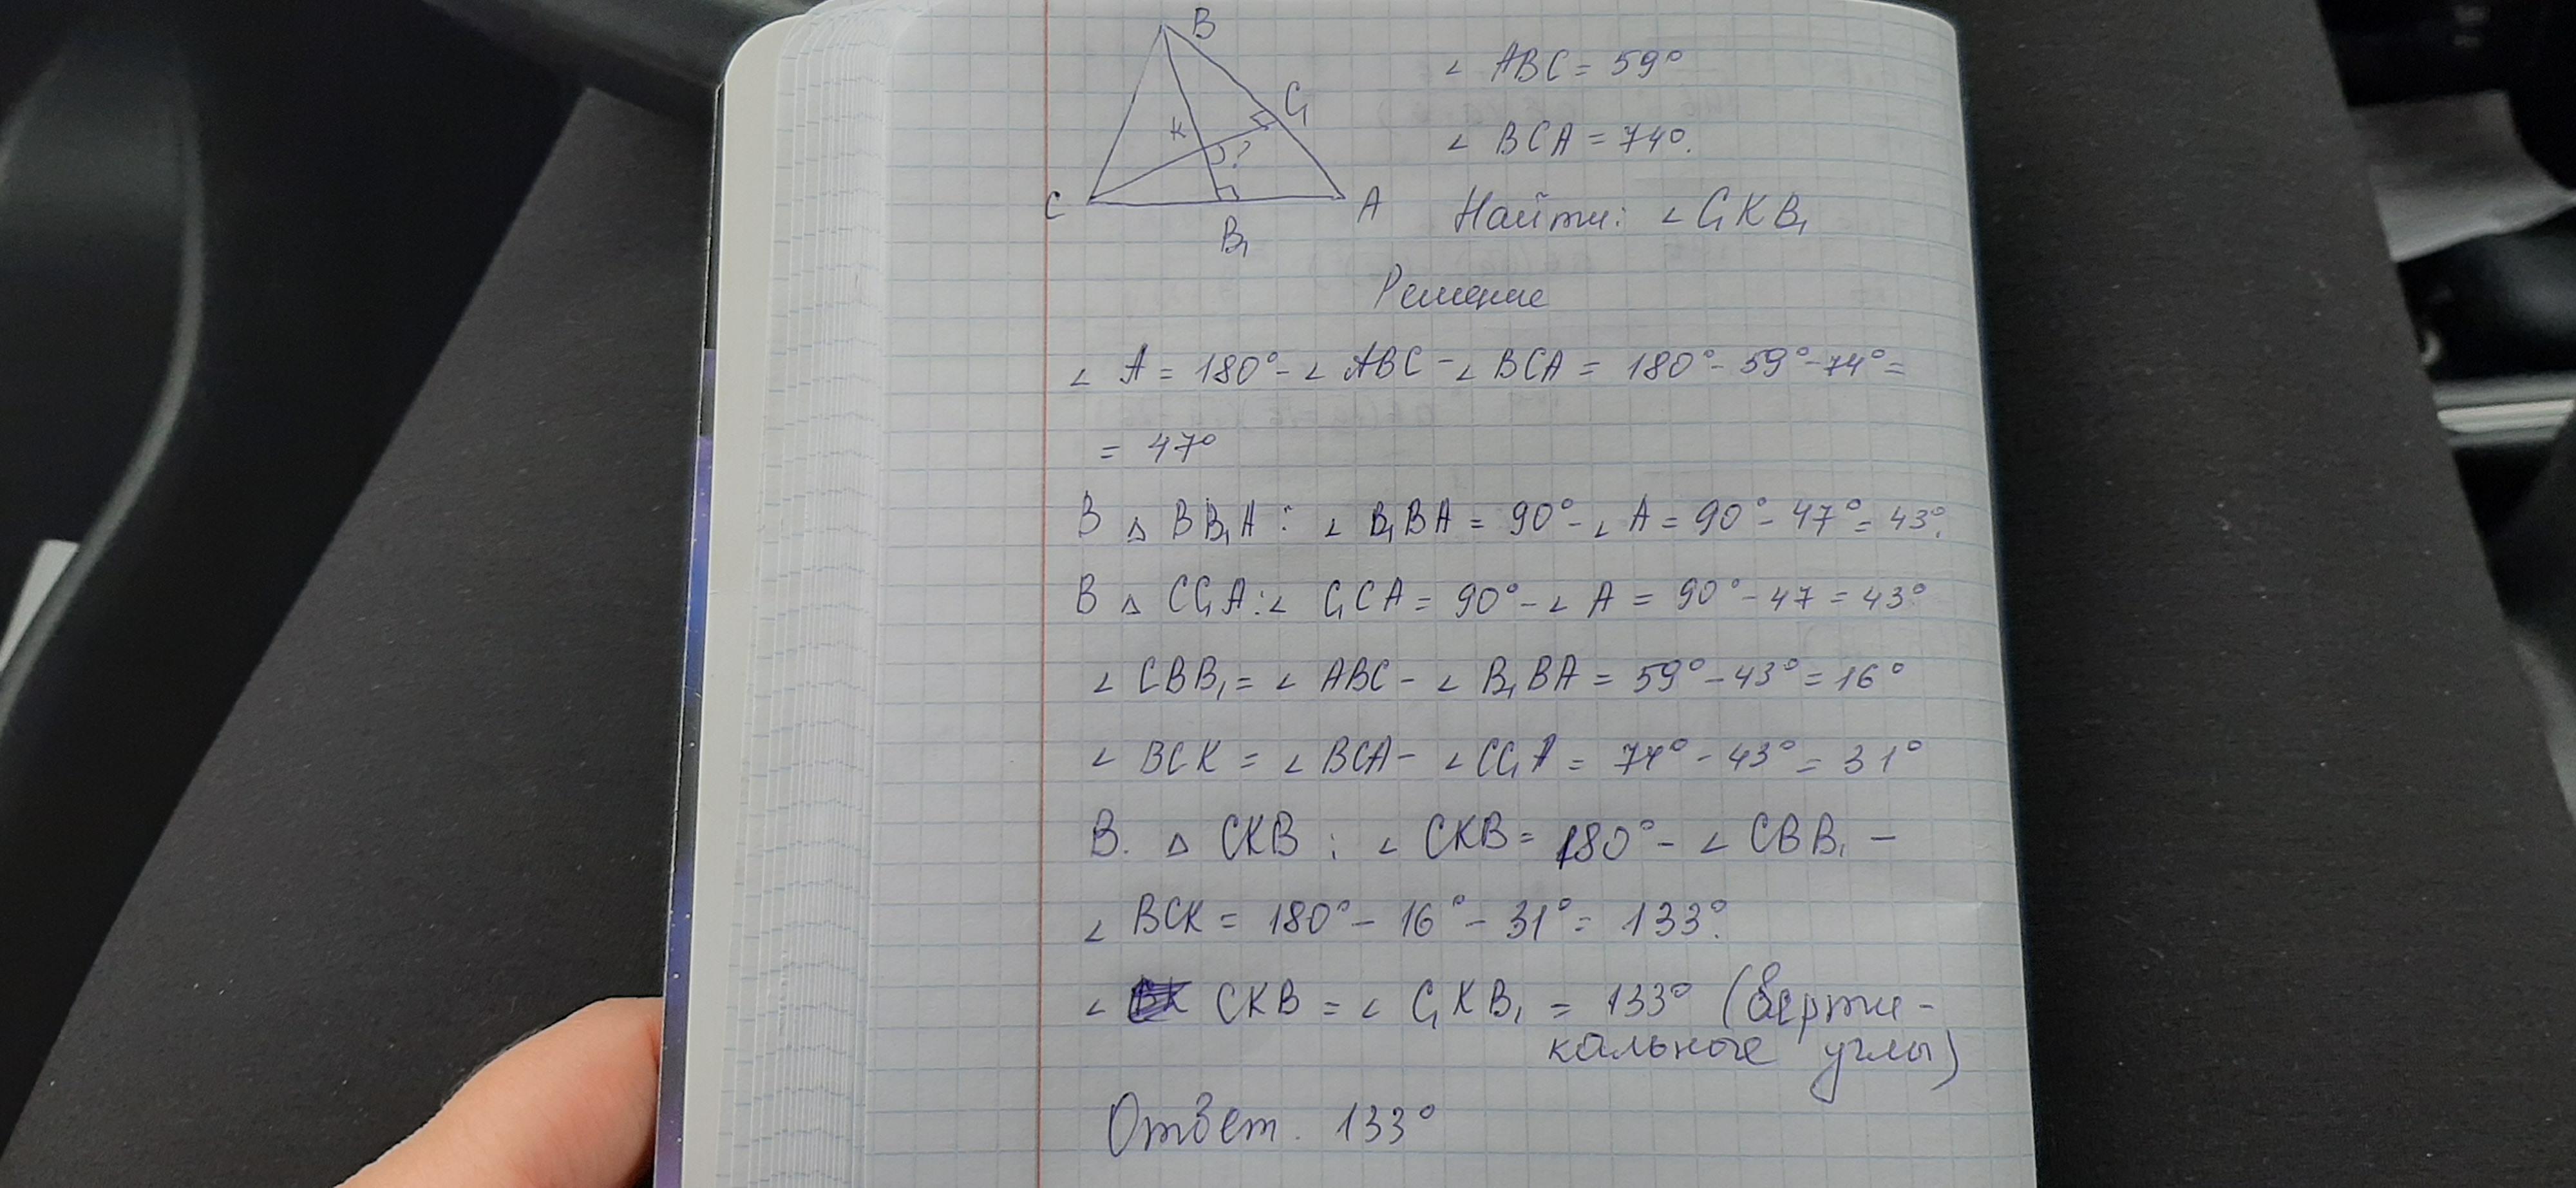 B
∠ ABC = 59°
C₁
∠ BCA = 74°.
K
?
C
A
Найти: ∠ C₁KB₁
B₁
Решение
∠ A = 180° - ∠ ABC - ∠ BCA = 180° - 59° - 74° =
= 47°
В △ BB₁A : ∠ B₁BA = 90° - ∠ A = 90° - 47° = 43°.
В △ CC₁A : ∠ C₁CA = 90° - ∠ A = 90° - 47 = 43°
∠ CBB₁ = ∠ ABC - ∠ B₁BA = 59° - 43° = 16°
∠ BCK = ∠ BCA - ∠ CC₁A = 74° - 43° = 31°
В. △ CKB : ∠ CKB = 180° - ∠ CBB₁ -
∠ BCK = 180° - 16° - 31° = 133°.
∠ CKB = ∠ C₁KB₁ = 133° (верти-
кальные углы)
Ответ. 133°